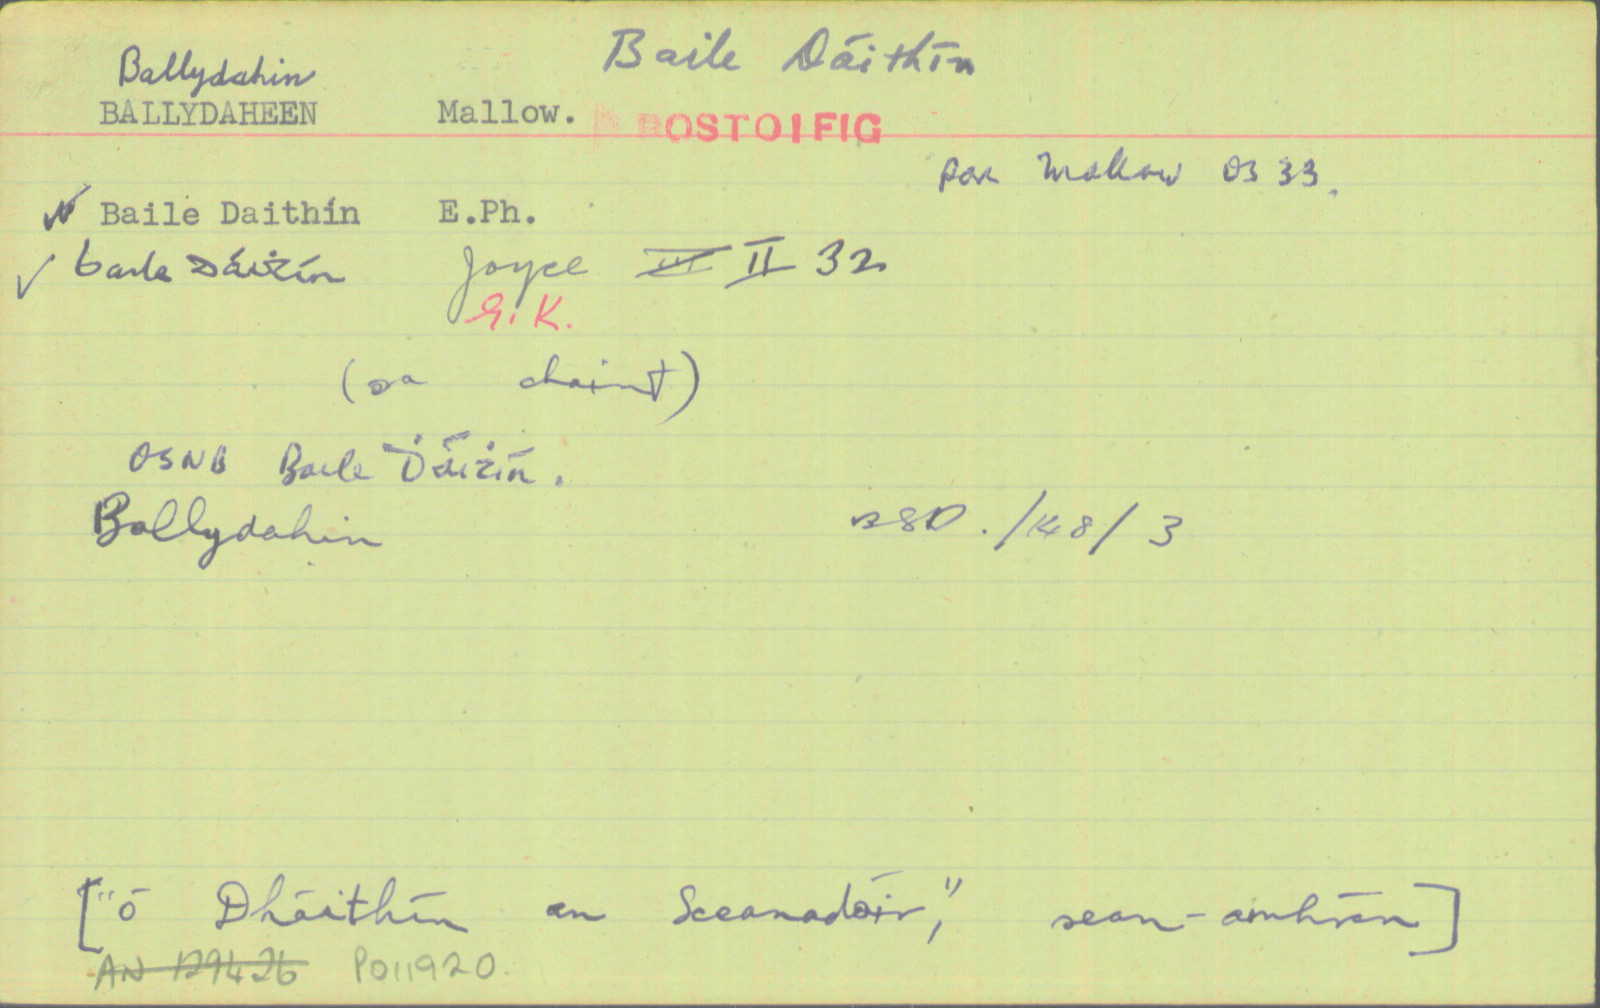 Baile Dáithín
Ballydahin
BALLYDAHEEN Mallow. POSTOIFIG
par Mallow OS 33.
Baile Daithín E.Ph.
baile Dáiṫín Joyce III II 32
G.K.
(sa chaint)
OSNB Baile Ḋáiṫín.
Ballydahin /K8/3
["ó Dháithín an Sceanadóir," sean-amhrán]
AN 129426 P011920.